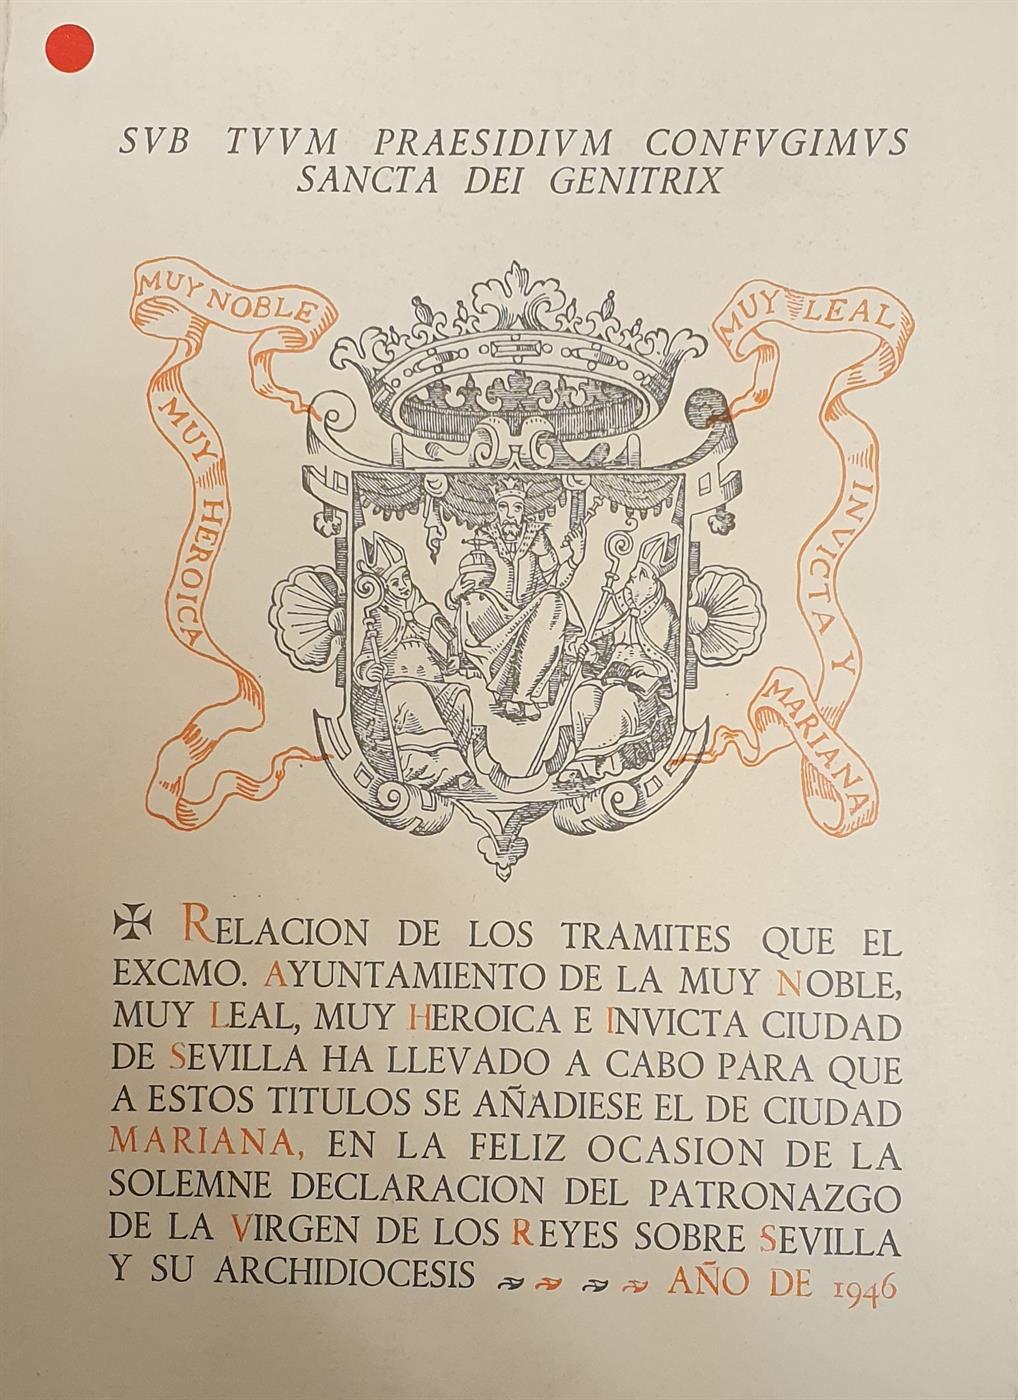 SVB TVVM PRAESIDIVM CONFVGIMVS
SANCTA DEI GENITRIX
MUY NOBLE
MUY HEROICA
MUY LEAL
INVICTA Y
MARIANA
✠ RELACION DE LOS TRAMITES QUE EL
EXCMO. AYUNTAMIENTO DE LA MUY NOBLE,
MUY LEAL, MUY HEROICA E INVICTA CIUDAD
DE SEVILLA HA LLEVADO A CABO PARA QUE
A ESTOS TITULOS SE AÑADIESE EL DE CIUDAD
MARIANA, EN LA FELIZ OCASION DE LA
SOLEMNE DECLARACION DEL PATRONAZGO
DE LA VIRGEN DE LOS REYES SOBRE SEVILLA
Y SU ARCHIDIOCESIS AÑO DE 1946